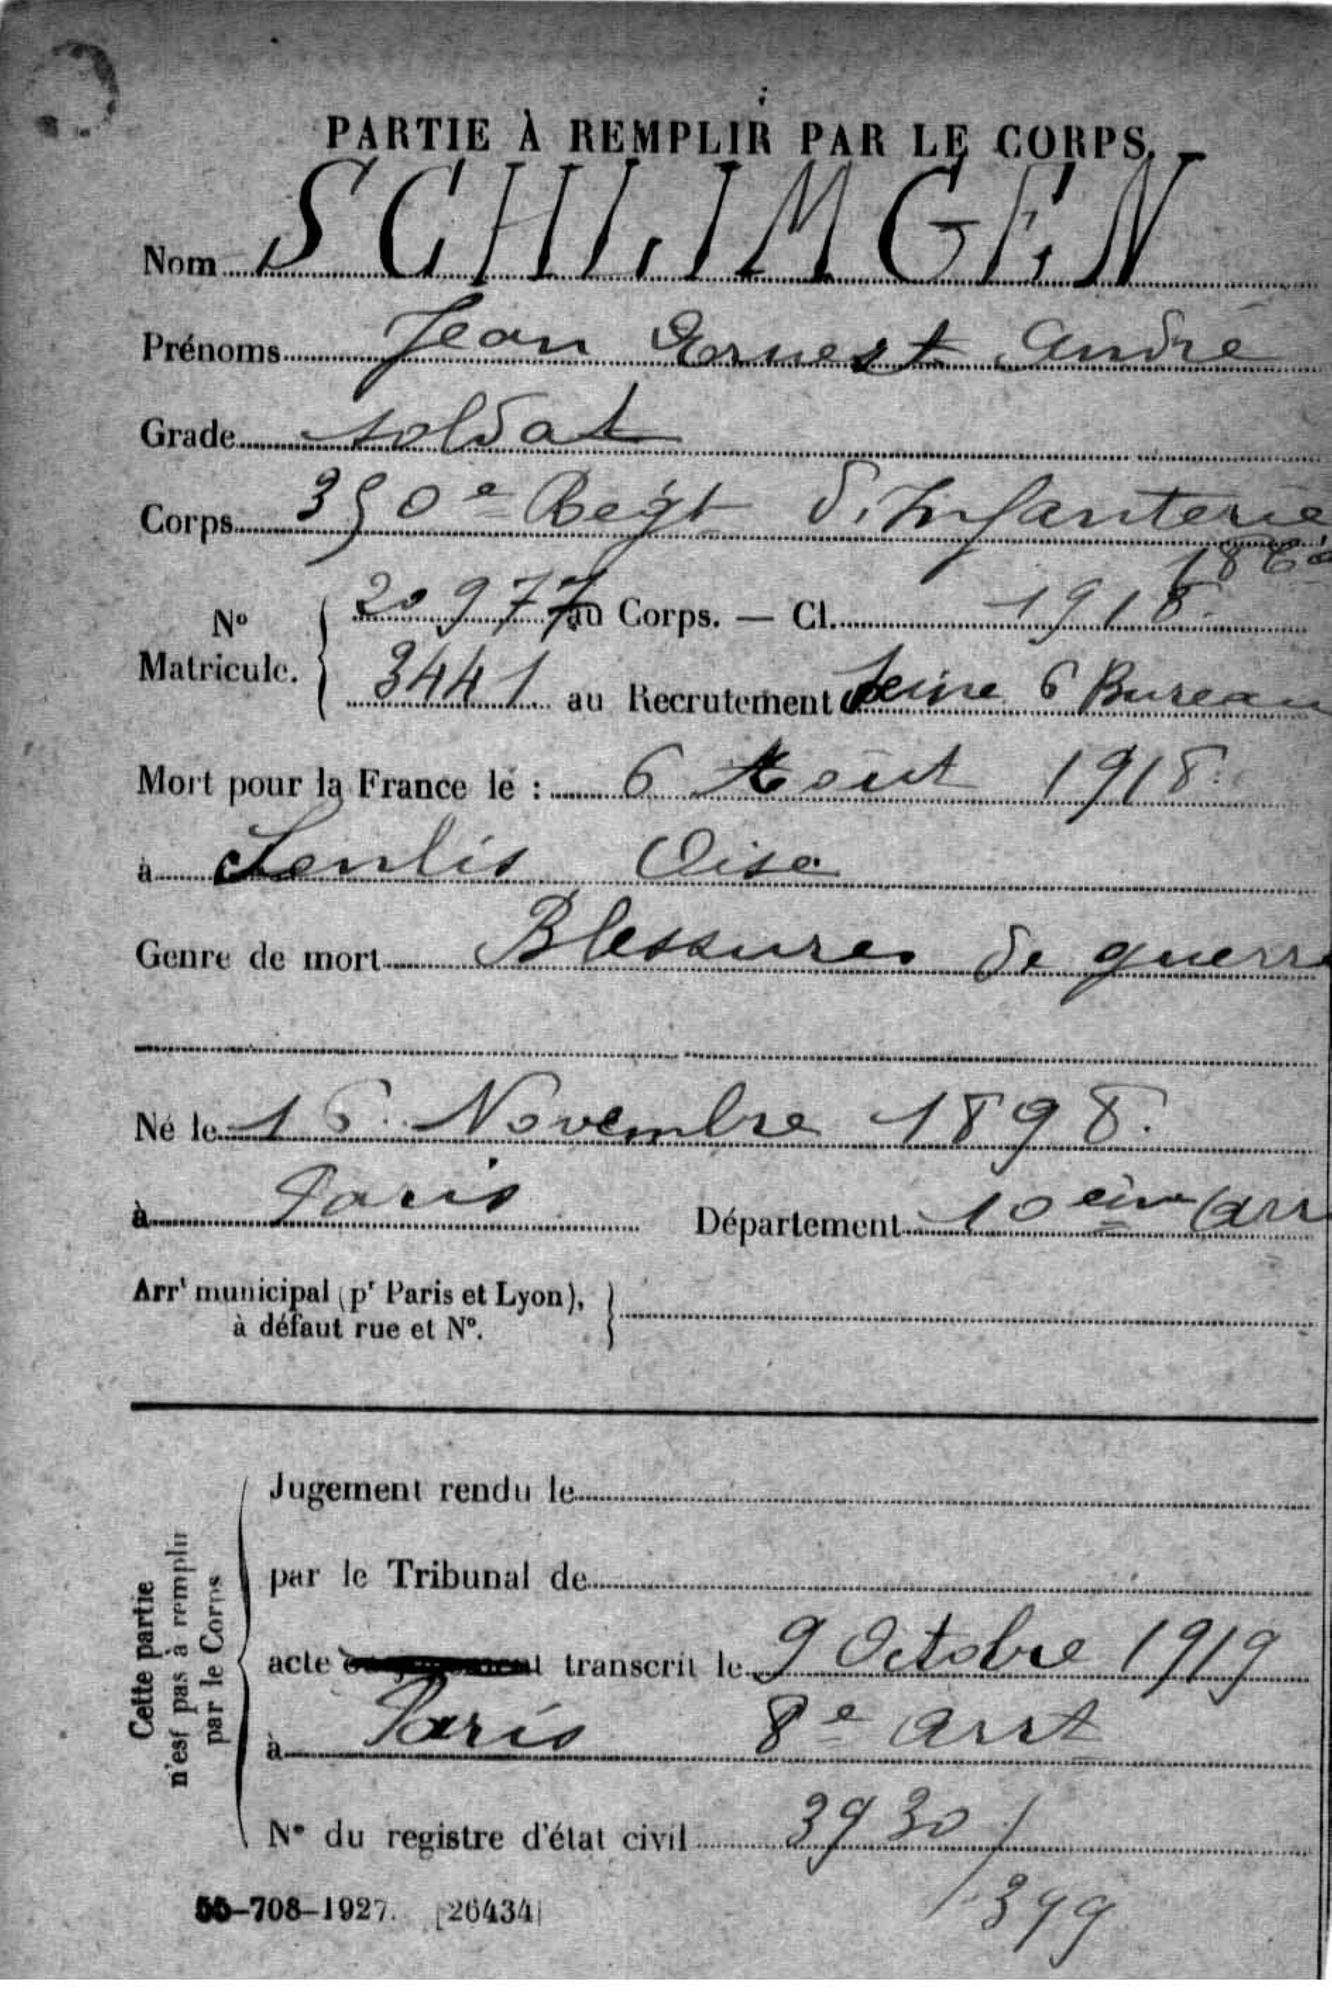 PARTIE À REMPLIR PAR LE CORPS.
Nom SCHLIMGEN
Prénoms Jean Ernest André
Grade soldat
Corps 350e Regt d'Infanterie
N° Matricule. 20977 au Corps. — Cl. 1918
3441 au Recrutement Seine 6 Bureau
Mort pour la France le : 6 Août 1918
à Senlis Oise
Genre de mort Blessures de guerre
Né le 16 Novembre 1898.
à Paris Département 10ème Arr
Arrt municipal (pr Paris et Lyon),
à défaut rue et N°.
Cette partie
n'est pas à remplir
par le Corps
Jugement rendu le
par le Tribunal de
acte transcrit le 9 Octobre 1919
à Paris 8e arrt
N° du registre d'état civil 3930/
399
55-708-1927. [26434]